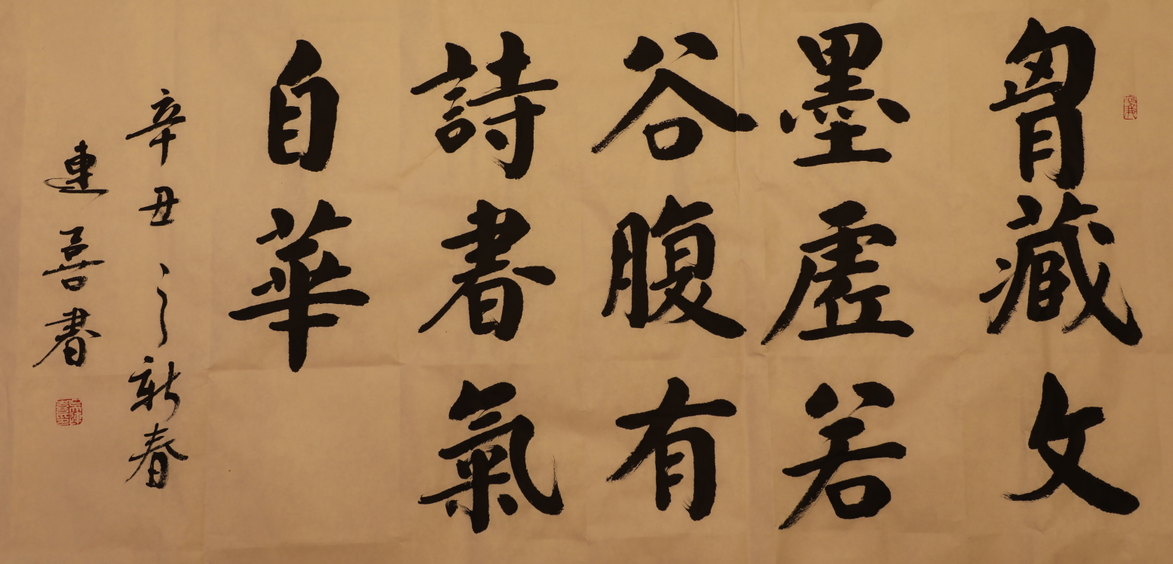 胷藏文
墨虛若
谷腹有
詩書氣
自華
辛丑之新春
連喜書